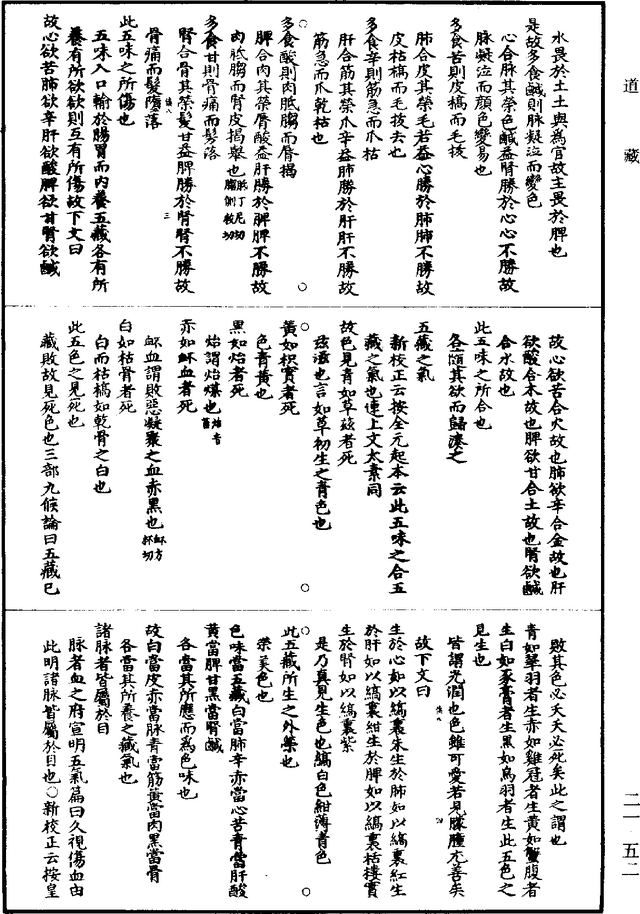 道藏
水畏於土土與爲官故主畏於脾也
是故多食鹹則脉凝泣而變色
心合脉其榮色鹹益腎勝於心心不勝故
脉凝泣而顏色變易也
多食苦則皮槁而毛拔
肺合皮其榮毛苦益心勝於肺肺不勝故
皮枯槁而毛拔去也
多食辛則筋急而爪枯
肝合筋其榮爪辛益肺勝於肝肝不勝故
筋急而爪乾枯也
多食酸則肉胝䐢而脣揭
脾合肉其榮脣酸益肝勝於脾脾不勝故
肉胝䐢而脣皮揭舉也胝丁尼切䐢側救切
多食甘則骨痛而髮落
腎合骨其榮髮甘益脾勝於腎腎不勝故
骨痛而髮墮落
此五味之所傷也
五味入口輸於腸胃而內養五藏各有所
養有所欲欲則互有所傷故下文曰
故心欲苦肺欲辛肝欲酸脾欲甘腎欲鹹
故心欲苦合火故也肺欲辛合金故也肝
欲酸合木故也脾欲甘合土故也腎欲鹹
合水故也
此五味之所合也
各隨其欲而歸湊之
五藏之氣
新校正云按全元起本云此五味之合五
藏之氣也連上文太素同
故色見青如草兹者死
兹滋也言如草初生之青色也
黃如枳實者死
色青黃也
黑如炲者死
炲謂炲煤也炲音苔
赤如衃血者死
衃血謂敗惡凝聚之血赤黑也衃方杯切
白如枯骨者死
白而枯槁如乾骨之白也
此五色之見死也
藏敗故見死色也三部九候論曰五藏已
敗其色必夭夭必死矣此之謂也
青如翠羽者生赤如雞冠者生黃如蟹腹者
生白如豕膏者生黑如烏羽者生此五色之
見生也
皆謂光潤也色雖可愛若見朦朧尤善矣
故下文曰
生於心如以縞裹朱生於肺如以縞裹紅生
於肝如以縞裹紺生於脾如以縞裹栝樓實
生於腎如以縞裹紫
是乃真見生色也縞白色紺薄青色
此五藏所生之外榮也
榮美色也
色味當五藏白當肺辛赤當心苦青當肝酸
黃當脾甘黑當腎鹹
各當其所應而爲色味也
故白當皮赤當脉青當筋黃當肉黑當骨
各當其所養之藏氣也
諸脉者皆屬於目
脉者血之府宣明五氣篇曰久視傷血由
此明諸脉皆屬於目也○新校正云按皇
二一 五二